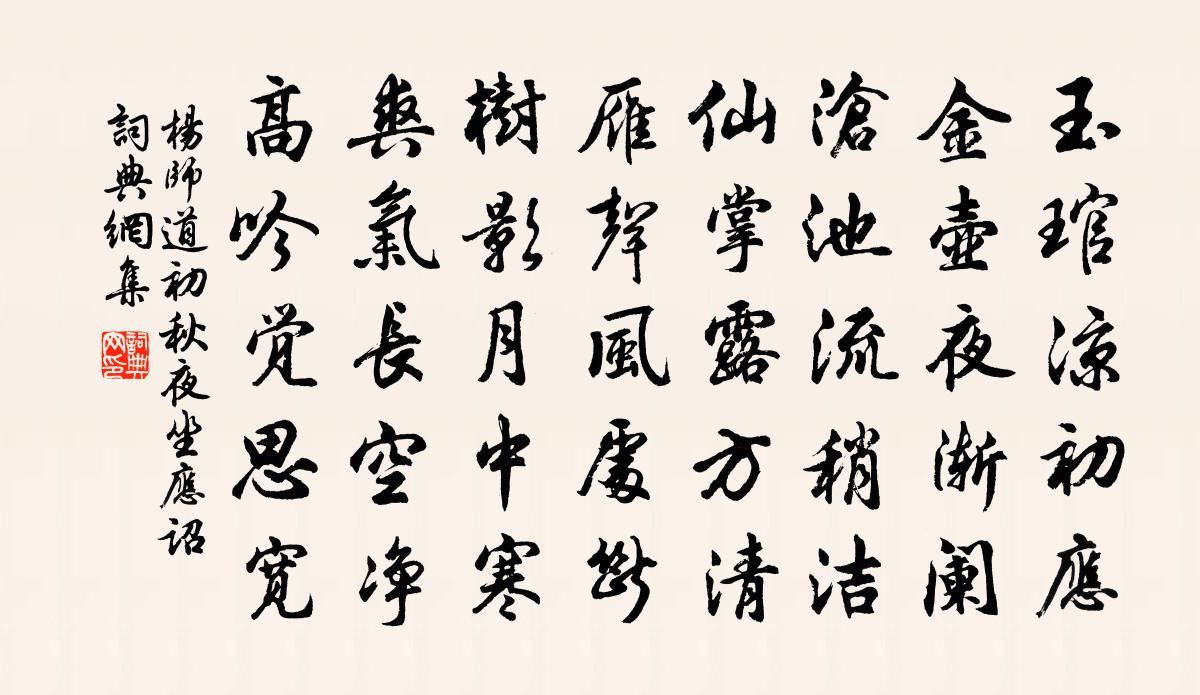 玉琯涼初應
金壺夜漸闌
滄池流稍洁
仙掌露方清
雁聲風處斷
樹影月中寒
爽氣長空净
高吟覺思寬
楊師道初秋夜坐應詔
詞典網集
詞典网印